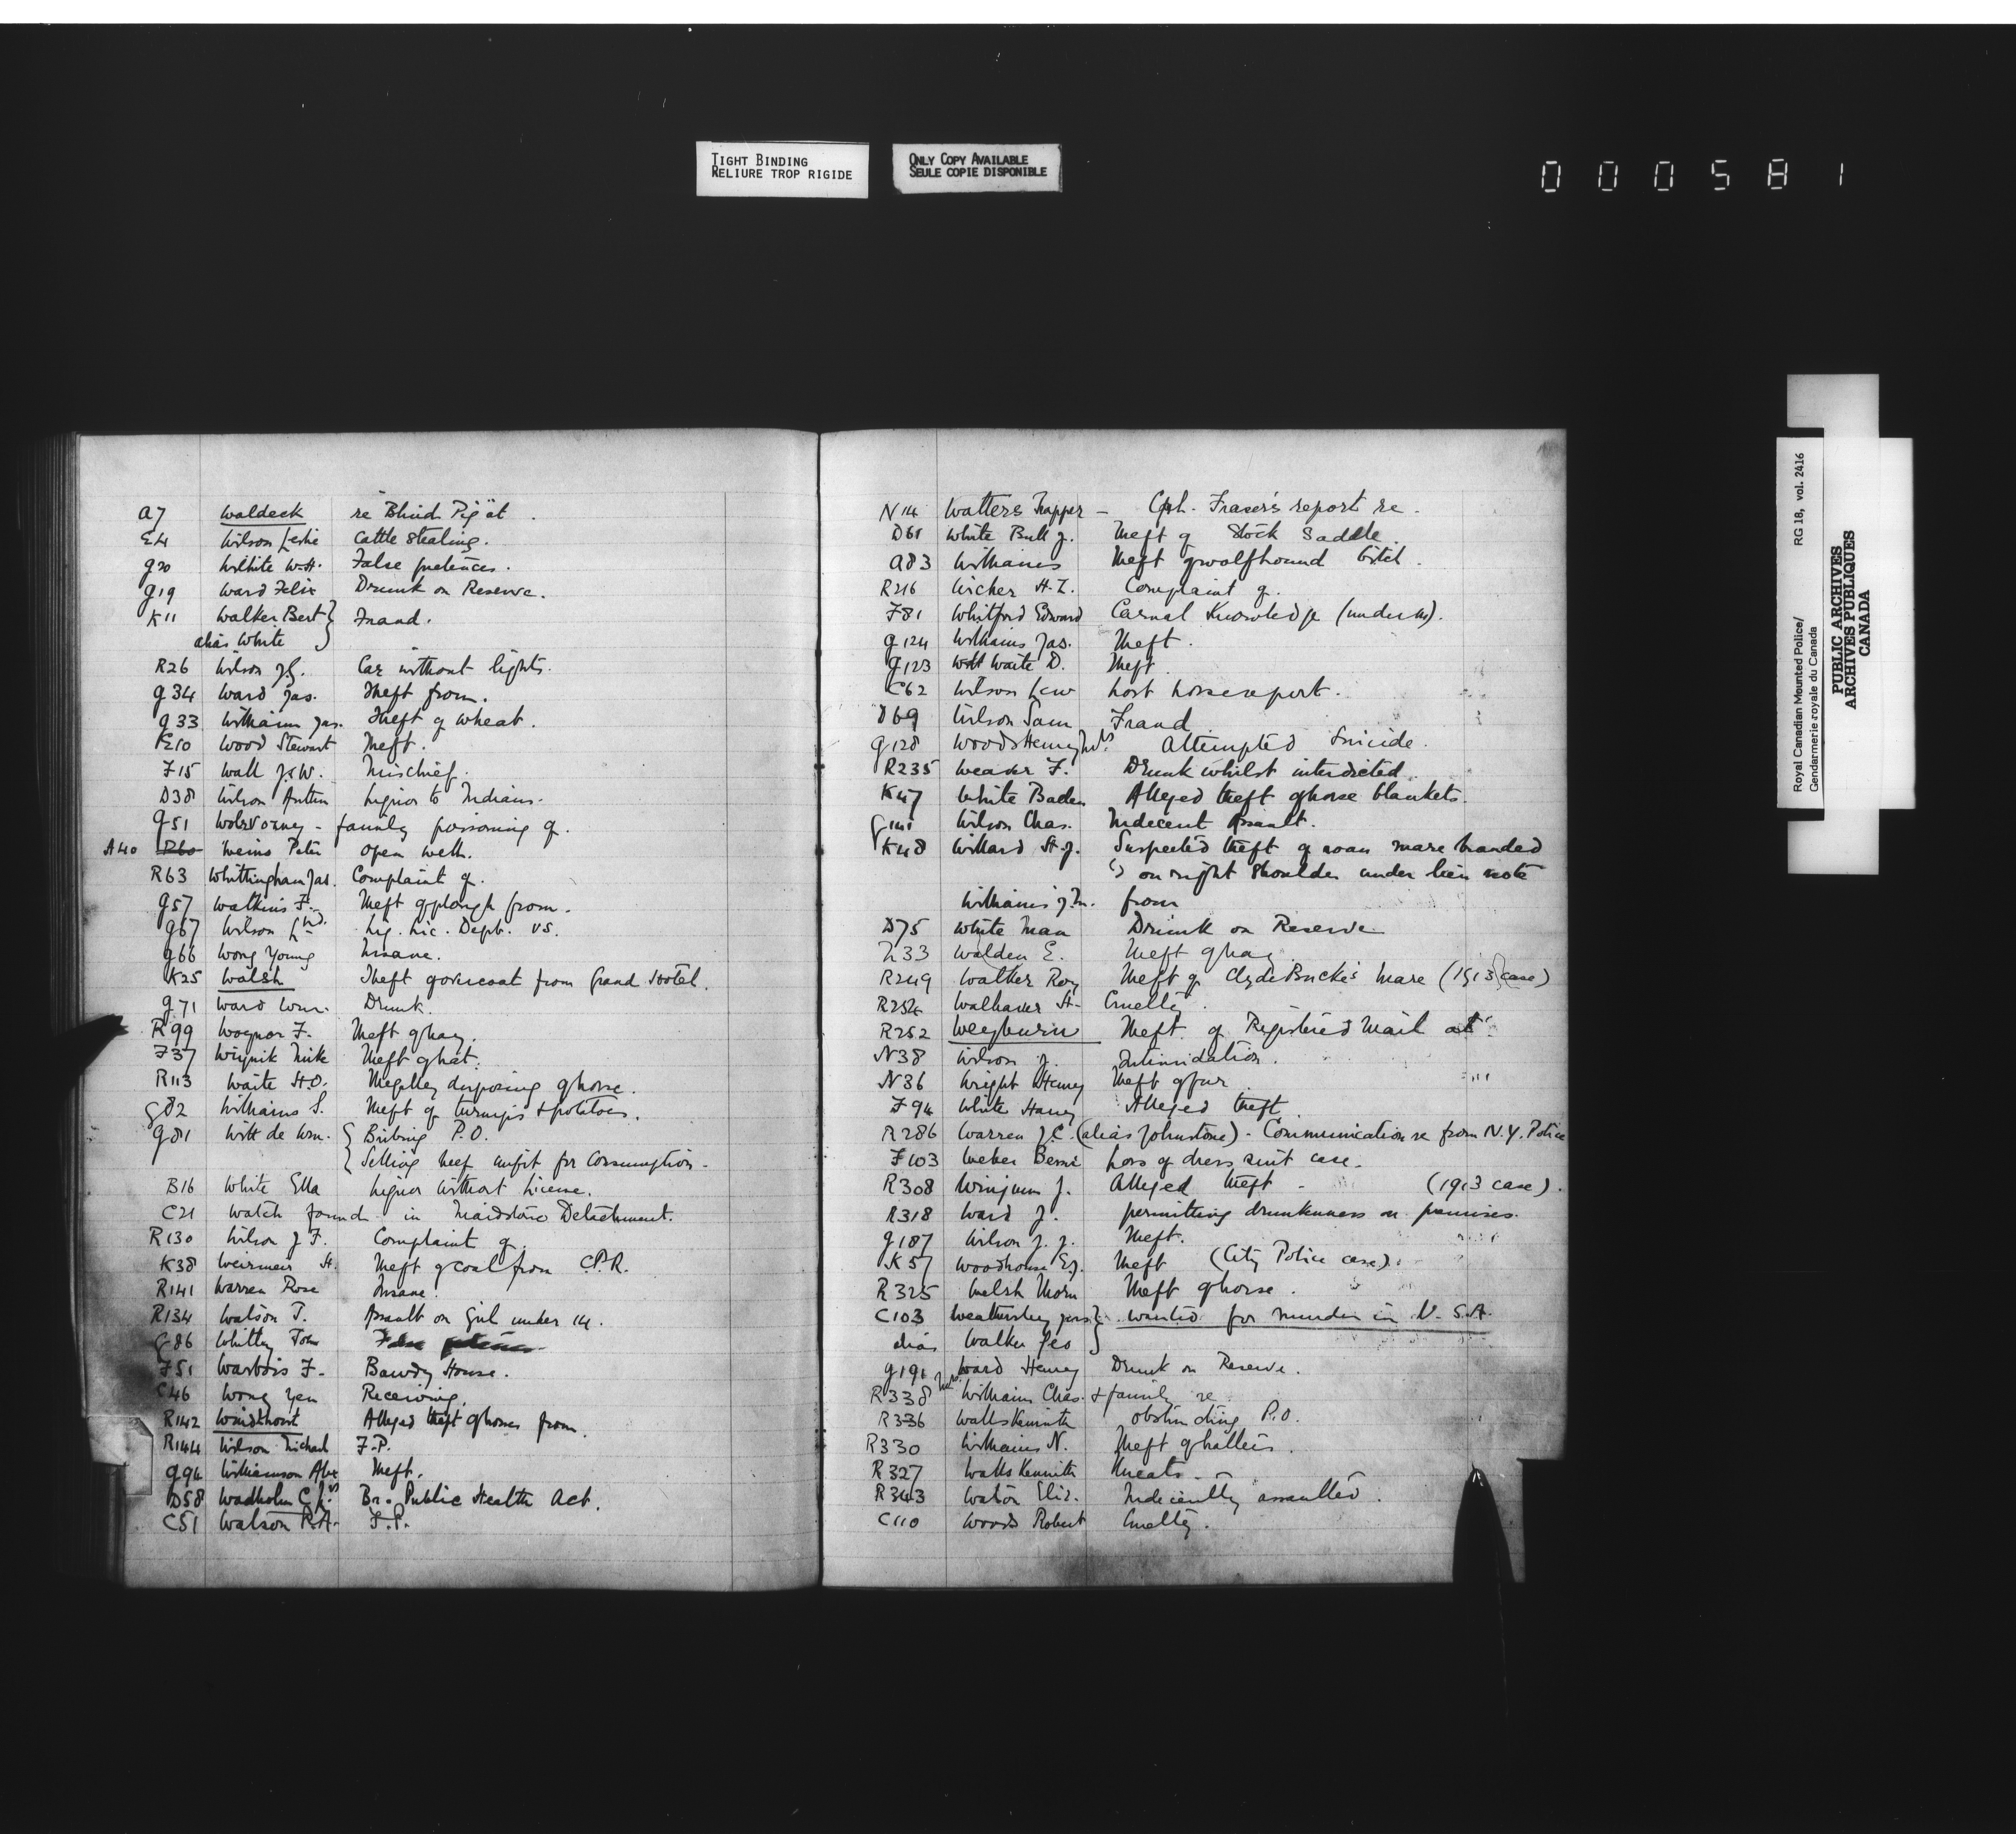 TIGHT BINDING
RELIURE TROP RIGIDE
ONLY COPY AVAILABLE
SEULE COPIE DISPONIBLE
000581
A7 Waldeck re Blind Pig at.
E4 Wilson Leslie Cattle Stealing.
G20 Wilhite W.H. False pretences.
G19 Ward Felix Drunk on Reserve.
K11 Walker Bert } Fraud.
alias White
R26 Wilson J.G. Car without lights.
G34 Ward Jas. Theft from.
G33 William Jas. Theft of wheat.
E10 Wood Stewart Theft.
F15 Wall J.W. Mischief.
D38 Wilson Liquor to Indians.
G51 family poisoning of.
A40 R60 Weins Peter Open well.
R63 Whittingham Jas. Complaint of.
G57 Watkins F. Theft of plough from.
G67 Wilson Liq. Lic. Dept. vs.
G66 Wong Young Insane.
K25 Walsh Theft of overcoat from Grand Hotel.
G71 Ward Wm. Drunk.
R99 Woynor F. Theft of hay.
F37 Mike Theft of hat.
R113 Waite H.O. Illegally disposing of horse.
G82 Williams S. Theft of turnips + potatoes.
G81 Witt de Wm. { Bribing P.O.
{ Selling beef unfit for consumption.
B16 White Ella Liquor without License.
C21 Watch found in Maidstone Detachment.
R130 Wilson J.F. Complaint of.
K38 Weirmeir H. Theft of coal from C.P.R.
R141 Warren Rose Insane.
R134 Watson T. Assault on Girl under 14.
G86 Whitley Tom False pretences
F51 Warbois F. Bawdy House.
C46 Wong Yen Receiving.
R142 Windthorst Alleged theft of horses from.
R144 Wilson Michael F.P.
G94 Williamson Alex Theft.
D58 Wadholm C. Br. Public Health Act.
C51 Watson R.A. F.P.
N14 Watters Trapper - Cpl. Fraser's report re.
D61 White Bull J. Theft of Stock Saddle.
A83 Williams Theft of wolfhound bitch.
R216 Wicher H.L. Complaint of.
F81 Whitford Edward Carnal Knowledge (under 14).
G124 Williams Jas. Theft.
G123 Waite D. Theft.
C62 Wilson Lew Lost horse report.
D69 Wilson Sam Fraud
G128 Woods Henry Mrs Attempted Suicide.
R235 Weaver F. Drunk whilst interdicted.
K47 White Baden Alleged theft of horse blankets.
G141 Wilson Chas. Indecent Assault.
K48 Willard H.J. Suspected theft of roan mare branded
on right shoulder under lien note
Williams J.M. from
D75 White Man Drunk on Reserve
Walden E. Theft of hay
R249 Walker Roy Theft of Clyde Buck's Mare (1913 case)
R254 Walhaver H. Cruelty.
R252 Weyburn Theft of Registered Mail at.
N38 Wilson J. Intimidation.
N36 Wright Henry Theft of fur.
F94 White Harry Alleged theft.
R286 Warren J.C. (alias Johnstone) - Communication re from N.Y. Police
F103 Weber Bernie Loss of dress suit case.
R308 Winjum J. Alleged theft - (1913 case).
R318 Ward J. permitting drunkenness on premises.
G187 Wilson J.J. Theft.
K57 Woodhouse E.J. Theft (City Police case).
R325 Welsh Morn Theft of horse.
C103 Weathersby Jas } wanted for murder in U.S.A.
alias Walker Geo
G191 Ward Henry Drunk on Reserve.
R338 Mrs. William Chas. + family re
R336 Watts Kenneth obstructing P.O.
R330 Williams N. Theft of halters.
R327 Watts Kenneth threats.
R343 Waton Eliz. Indecently assaulted.
C110 Woods Robert Cruelty.
Royal Canadian Mounted Police/ RG 18, vol. 2416
Gendarmerie royale du Canada
PUBLIC ARCHIVES
ARCHIVES PUBLIQUES
CANADA